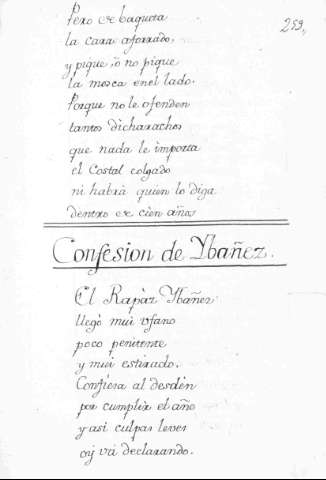 259,
Pero de baqueta
la cara aforrado,
y pique, ò no pique
la mosca enel lado.
Porque no le ofenden
tantos dicharachos
que nada le importa
el Costal colgado
ni habrà quien lo diga
dentro de cien años
Confesion de Ybañez.
El Rapàz Ybañez
llegò mui ufano
poco penitente
y mui estirado.
Confiesa al desdèn
por cumplir el año
y asi culpas leves
oy và declarando.